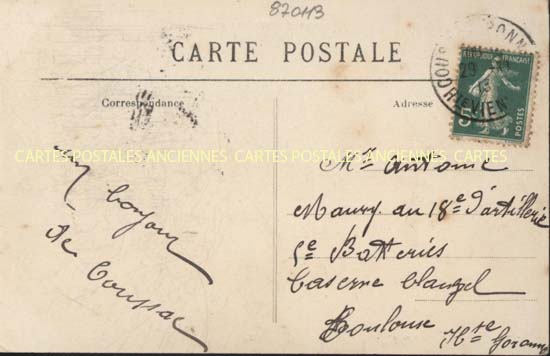 87043
CARTE POSTALE
Correspondance
Adresse
REPUBLIQUE FRANÇAISE
POSTES
5
29
CARTES POSTALES ANCIENNES CARTES POSTALES ANCIENNES CARTES
un bonjour
de Coussac
Mr Antoine
Maury au 18e d'artillerie
5e Batteries
Caserne Clauzel
Toulouse Hte Garonne